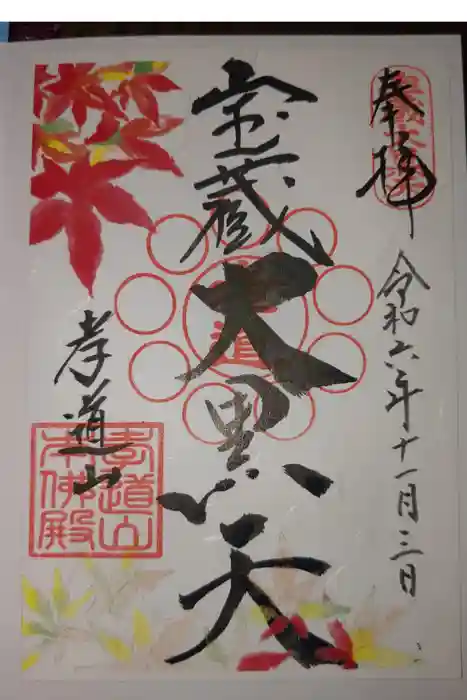 奉拝
令和六年十一月三日
宝蔵大黒天
孝道
孝道山
孝道山
本佛殿